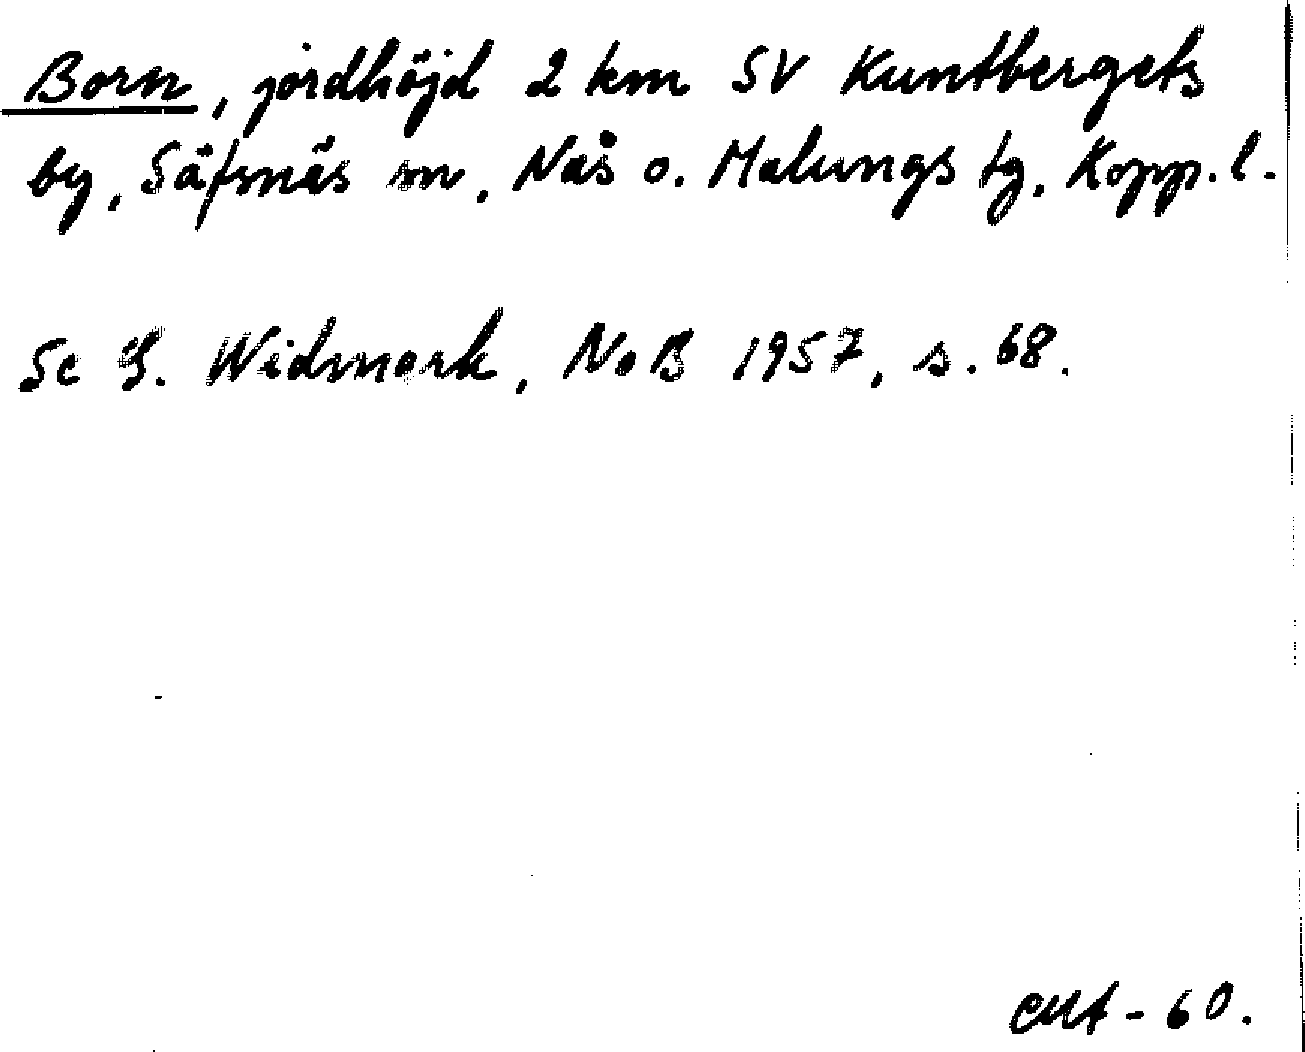 Born, jordhöjd 2 km SV Kuntbergets
by, Säfsnäs sn, Nås o. Malungs tg, Kopp. l.
Se G. Widmark, NoB 1957, s. 68.
-60.